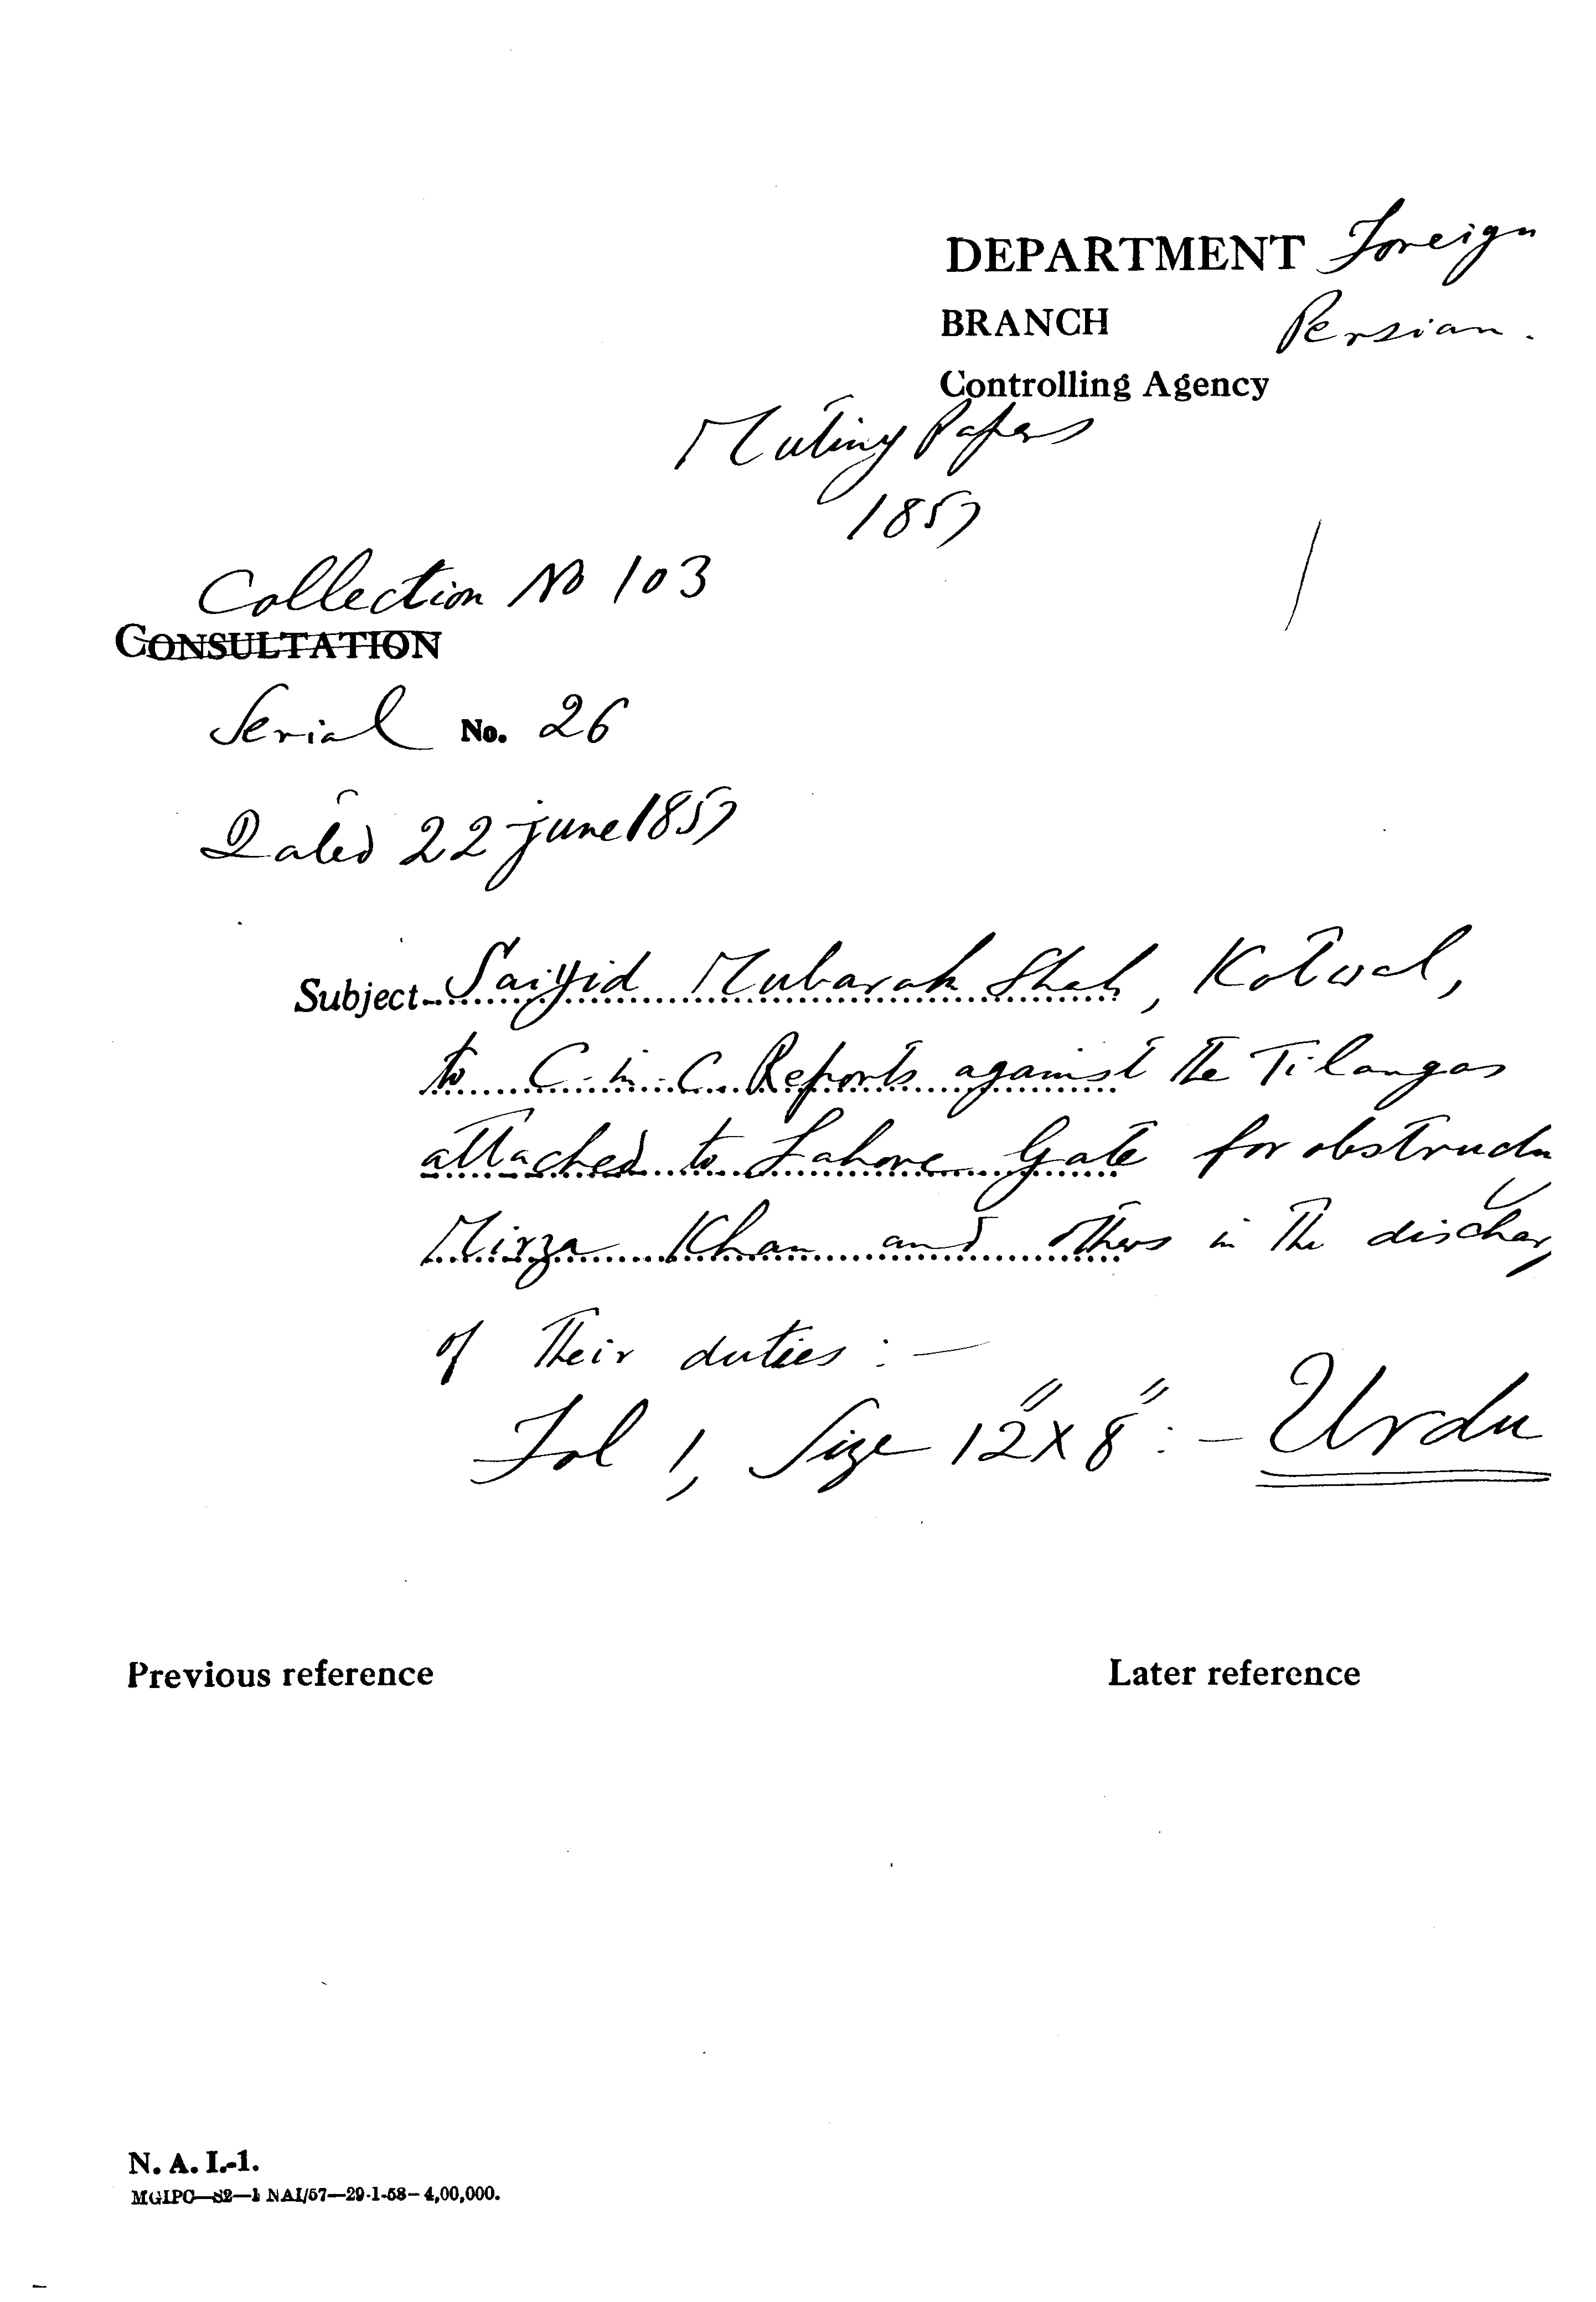 DEPARTMENT Foreign
BRANCH Persian.
Controlling Agency
Mutiny Papers
1857
Collection No 103
CONSULTATION
Serial No. 26
Dated 22 june 1857
Subject Saiyid Mubarak Shah, Kotwal,
to C-in-C Reports against the Tilangas
attached to Lahore Gate for obstructin
Mirza Khan and others in the dischar
of their duties :—
Fol 1, Size 12"x8" :— Urdu
Previous reference
Later reference
N. A. I.-1.
MGIPC—S2—1 NAI/57—29-1-58—4,00,000.